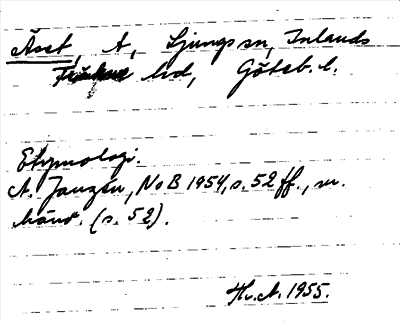 Åsst, t, Ljungs sn, Inlands
Fräkne hd, Göteb. l.
Etymologi.
A. Janzén, NoB 1954, s. 52 ff., m.
hänv. (s. 52).
Hr. A. 1955.